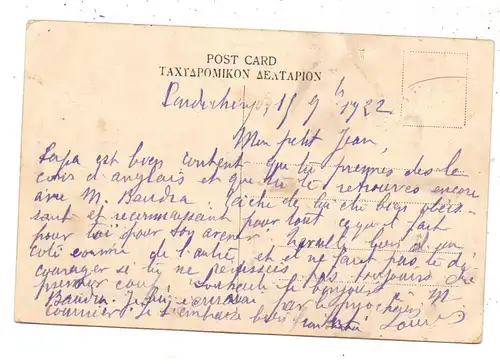 POST CARD
ΤΑΧΥΔΡΟΜΙΚΟΝ ΔΕΛΤΑΡΙΟΝ
15 9 1922
Mon petit Jean,
Papa est bien content que tu prennes des le
cours d'anglais et que tu te retrouves encore
avec M. Baudra. Tâche de lui être bien obéis-
sant et reconnaissant pour tout ce qu'il fait
pour toi pour ton avenir. Travaille bien d'un
côté comme de l'autre et il ne faut pas te dé
courager si tu ne réussis pas toujours du
premier coup. Souhaite le bonjour à M
Baudra. Je lui écrirai par le prochain
courrier. Je t'embrasse bien Louis